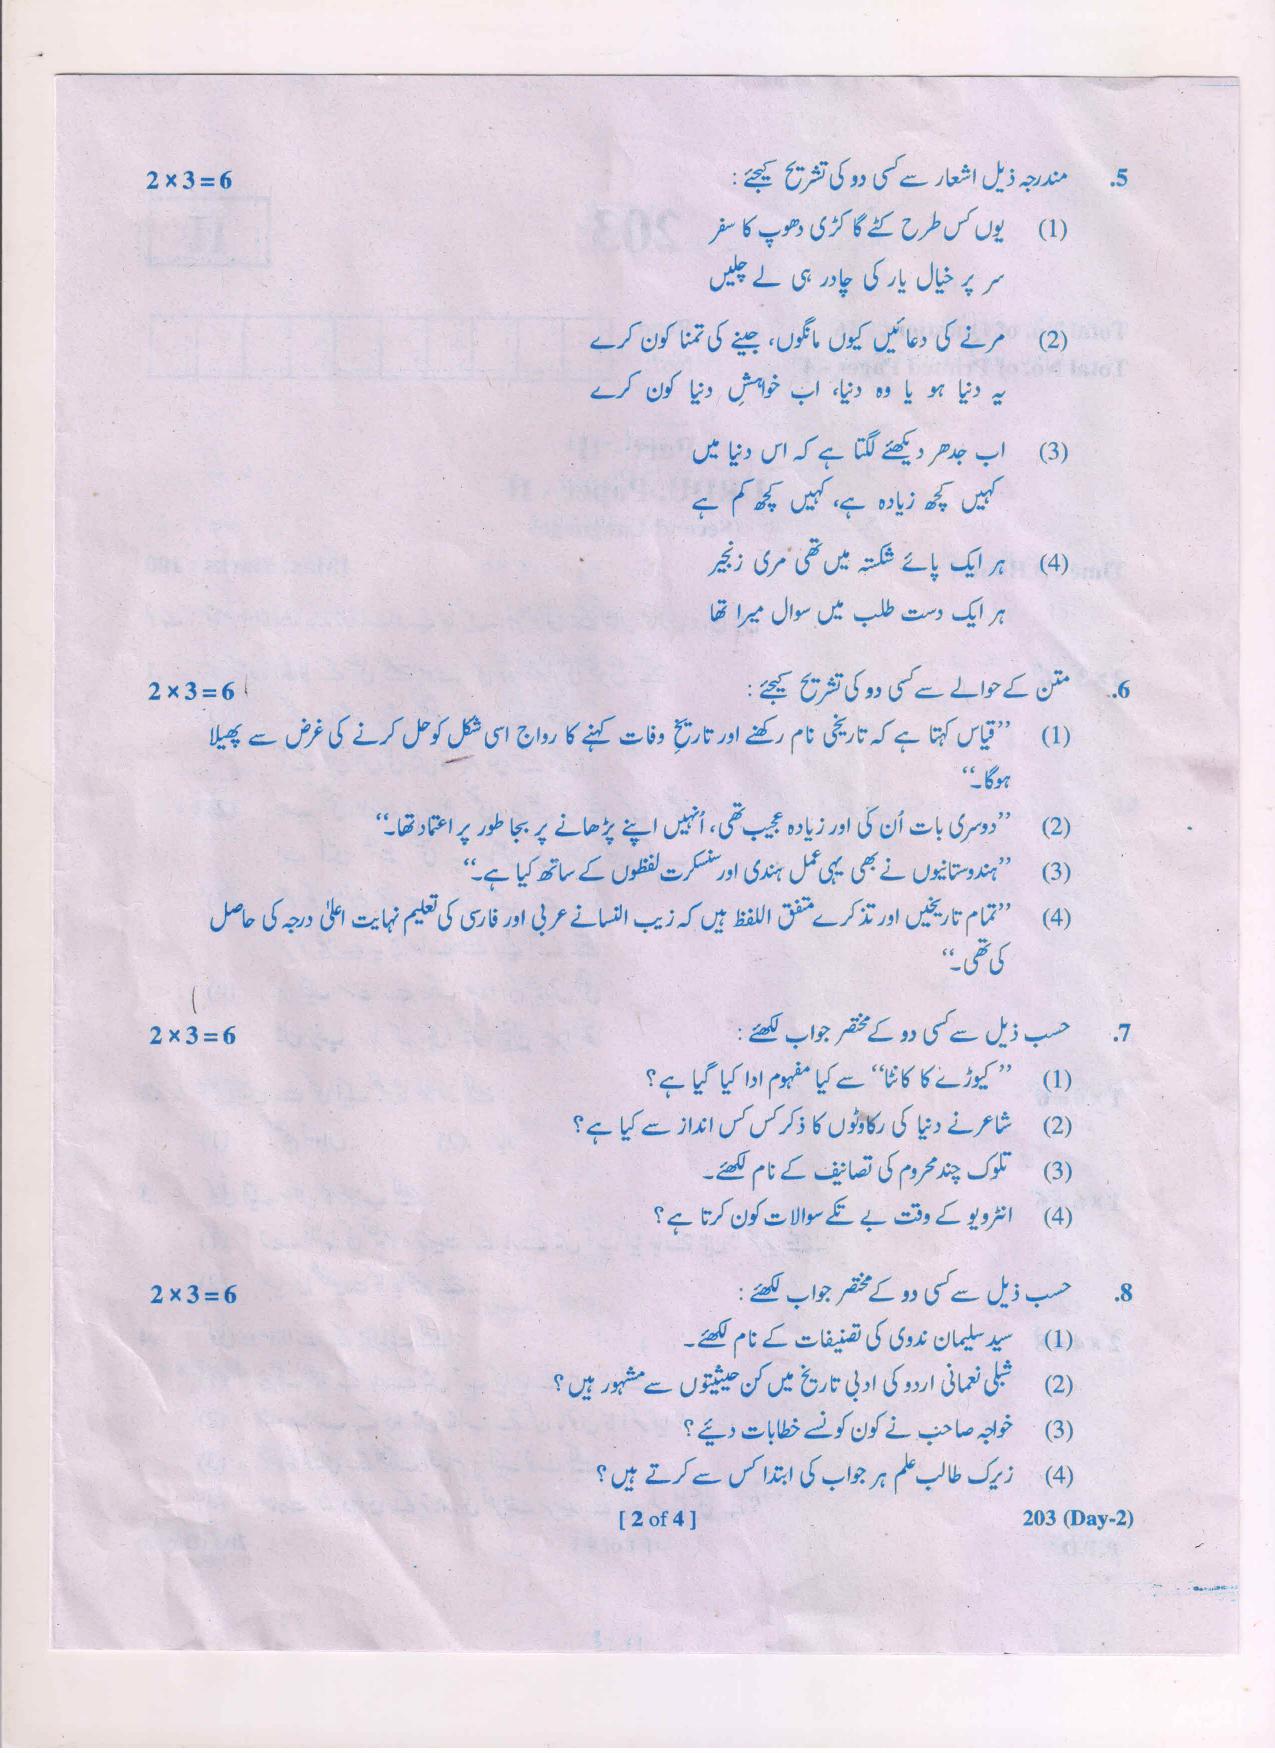 5. مندرجہ ذیل اشعار سے کسی دو کی تشریح کیجئے : 2×3=6
(1) یوں کس طرح کٹے گا کڑی دھوپ کا سفر
سر پر خیال یار کی چادر ہی لے چلیں
(2) مرنے کی دعائیں کیوں مانگوں، جینے کی تمنا کون کرے
یہ دنیا ہو یا وہ دنیا، اب خواہشِ دنیا کون کرے
(3) اب جدھر دیکھئے لگتا ہے کہ اس دنیا میں
کہیں کچھ زیادہ ہے، کہیں کچھ کم ہے
(4) ہر ایک پائے شکستہ میں تھی مری زنجیر
ہر ایک دست طلب میں سوال میرا تھا
6. متن کے حوالے سے کسی دو کی تشریح کیجئے : 2×3=6
(1) ”قیاس کہتا ہے کہ تاریخی نام رکھنے اور تاریخِ وفات کہنے کا رواج اسی شکل کو حل کرنے کی غرض سے پھیلا
ہوگا۔“
(2) ”دوسری بات اُن کی اور زیادہ عجیب تھی، اُنہیں اپنے پڑھانے پر بجا طور پر اعتماد تھا۔“
(3) ”ہندوستانیوں نے بھی یہی عمل ہندی اور سنسکرت لفظوں کے ساتھ کیا ہے۔“
(4) ”تمام تاریخیں اور تذکرے متفق اللفظ ہیں کہ زیب النسا نے عربی اور فارسی کی تعلیم نہایت اعلیٰ درجہ کی حاصل
کی تھی۔“
7. حسب ذیل سے کسی دو کے مختصر جواب لکھئے : 2×3=6
(1) ”کیوڑے کا کانٹا“ سے کیا مفہوم ادا کیا گیا ہے؟
(2) شاعر نے دنیا کی رکاوٹوں کا ذکر کس کس انداز سے کیا ہے؟
(3) تلوک چند محروم کی تصانیف کے نام لکھئے۔
(4) انٹرویو کے وقت بے تکے سوالات کون کرتا ہے؟
8. حسب ذیل سے کسی دو کے مختصر جواب لکھئے : 2×3=6
(1) سید سلیمان ندوی کی تصنیفات کے نام لکھئے۔
(2) شبلی نعمانی اردو کی ادبی تاریخ میں کن حیثیتوں سے مشہور ہیں؟
(3) خواجہ صاحب نے کون کونسے خطابات دیئے؟
(4) زیرک طالب علم ہر جواب کی ابتدا کس سے کرتے ہیں؟
203 (Day-2) [ 2 of 4 ]